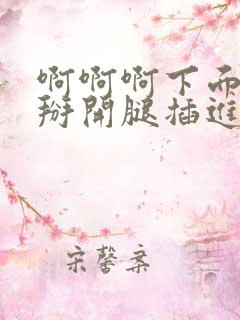 啊啊啊下面
掰開腿插進
宋馨案